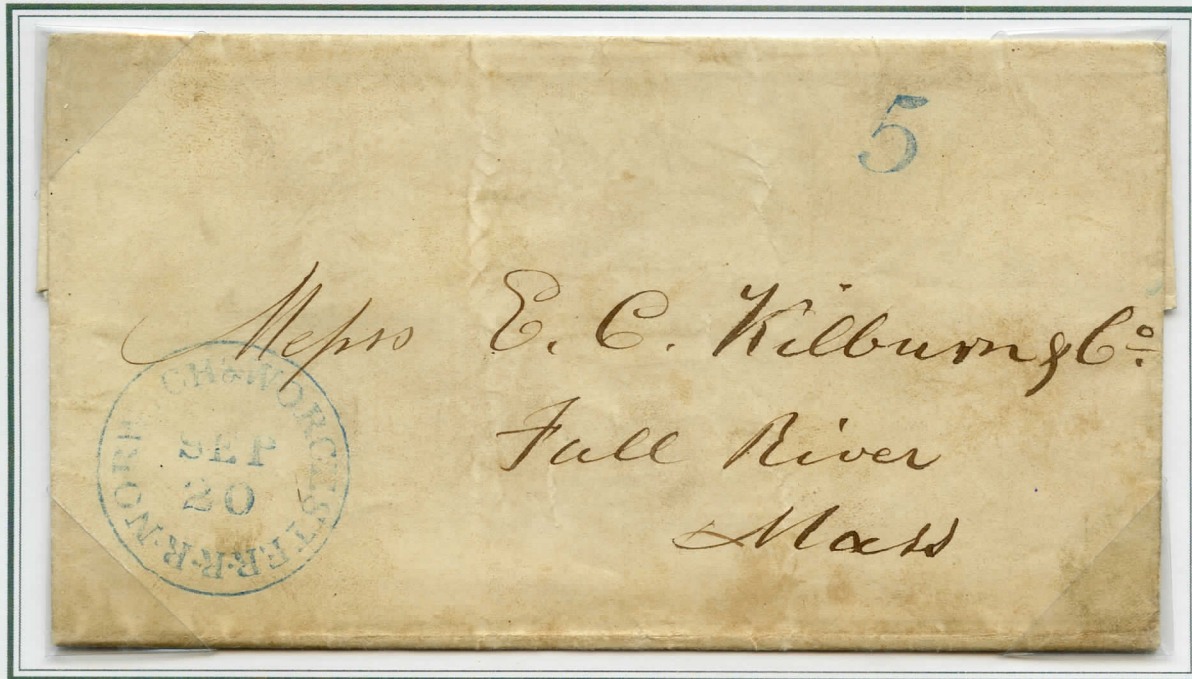 5
Messrs E. C. Kilburn & Co.
Fall River
Mass
NORWICH & WORCESTER R.R.
SEP
20